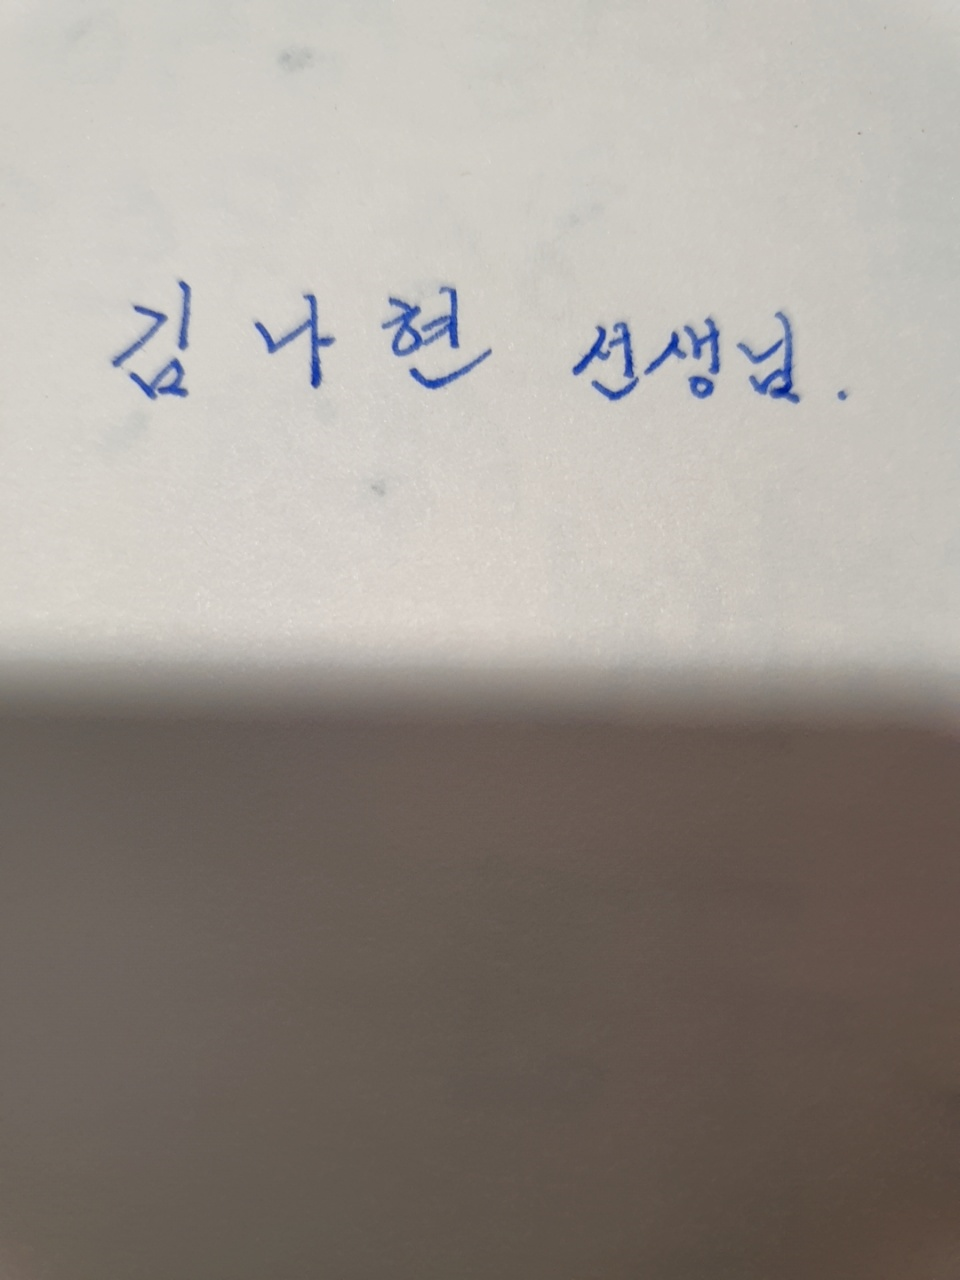 김나현 선생님.